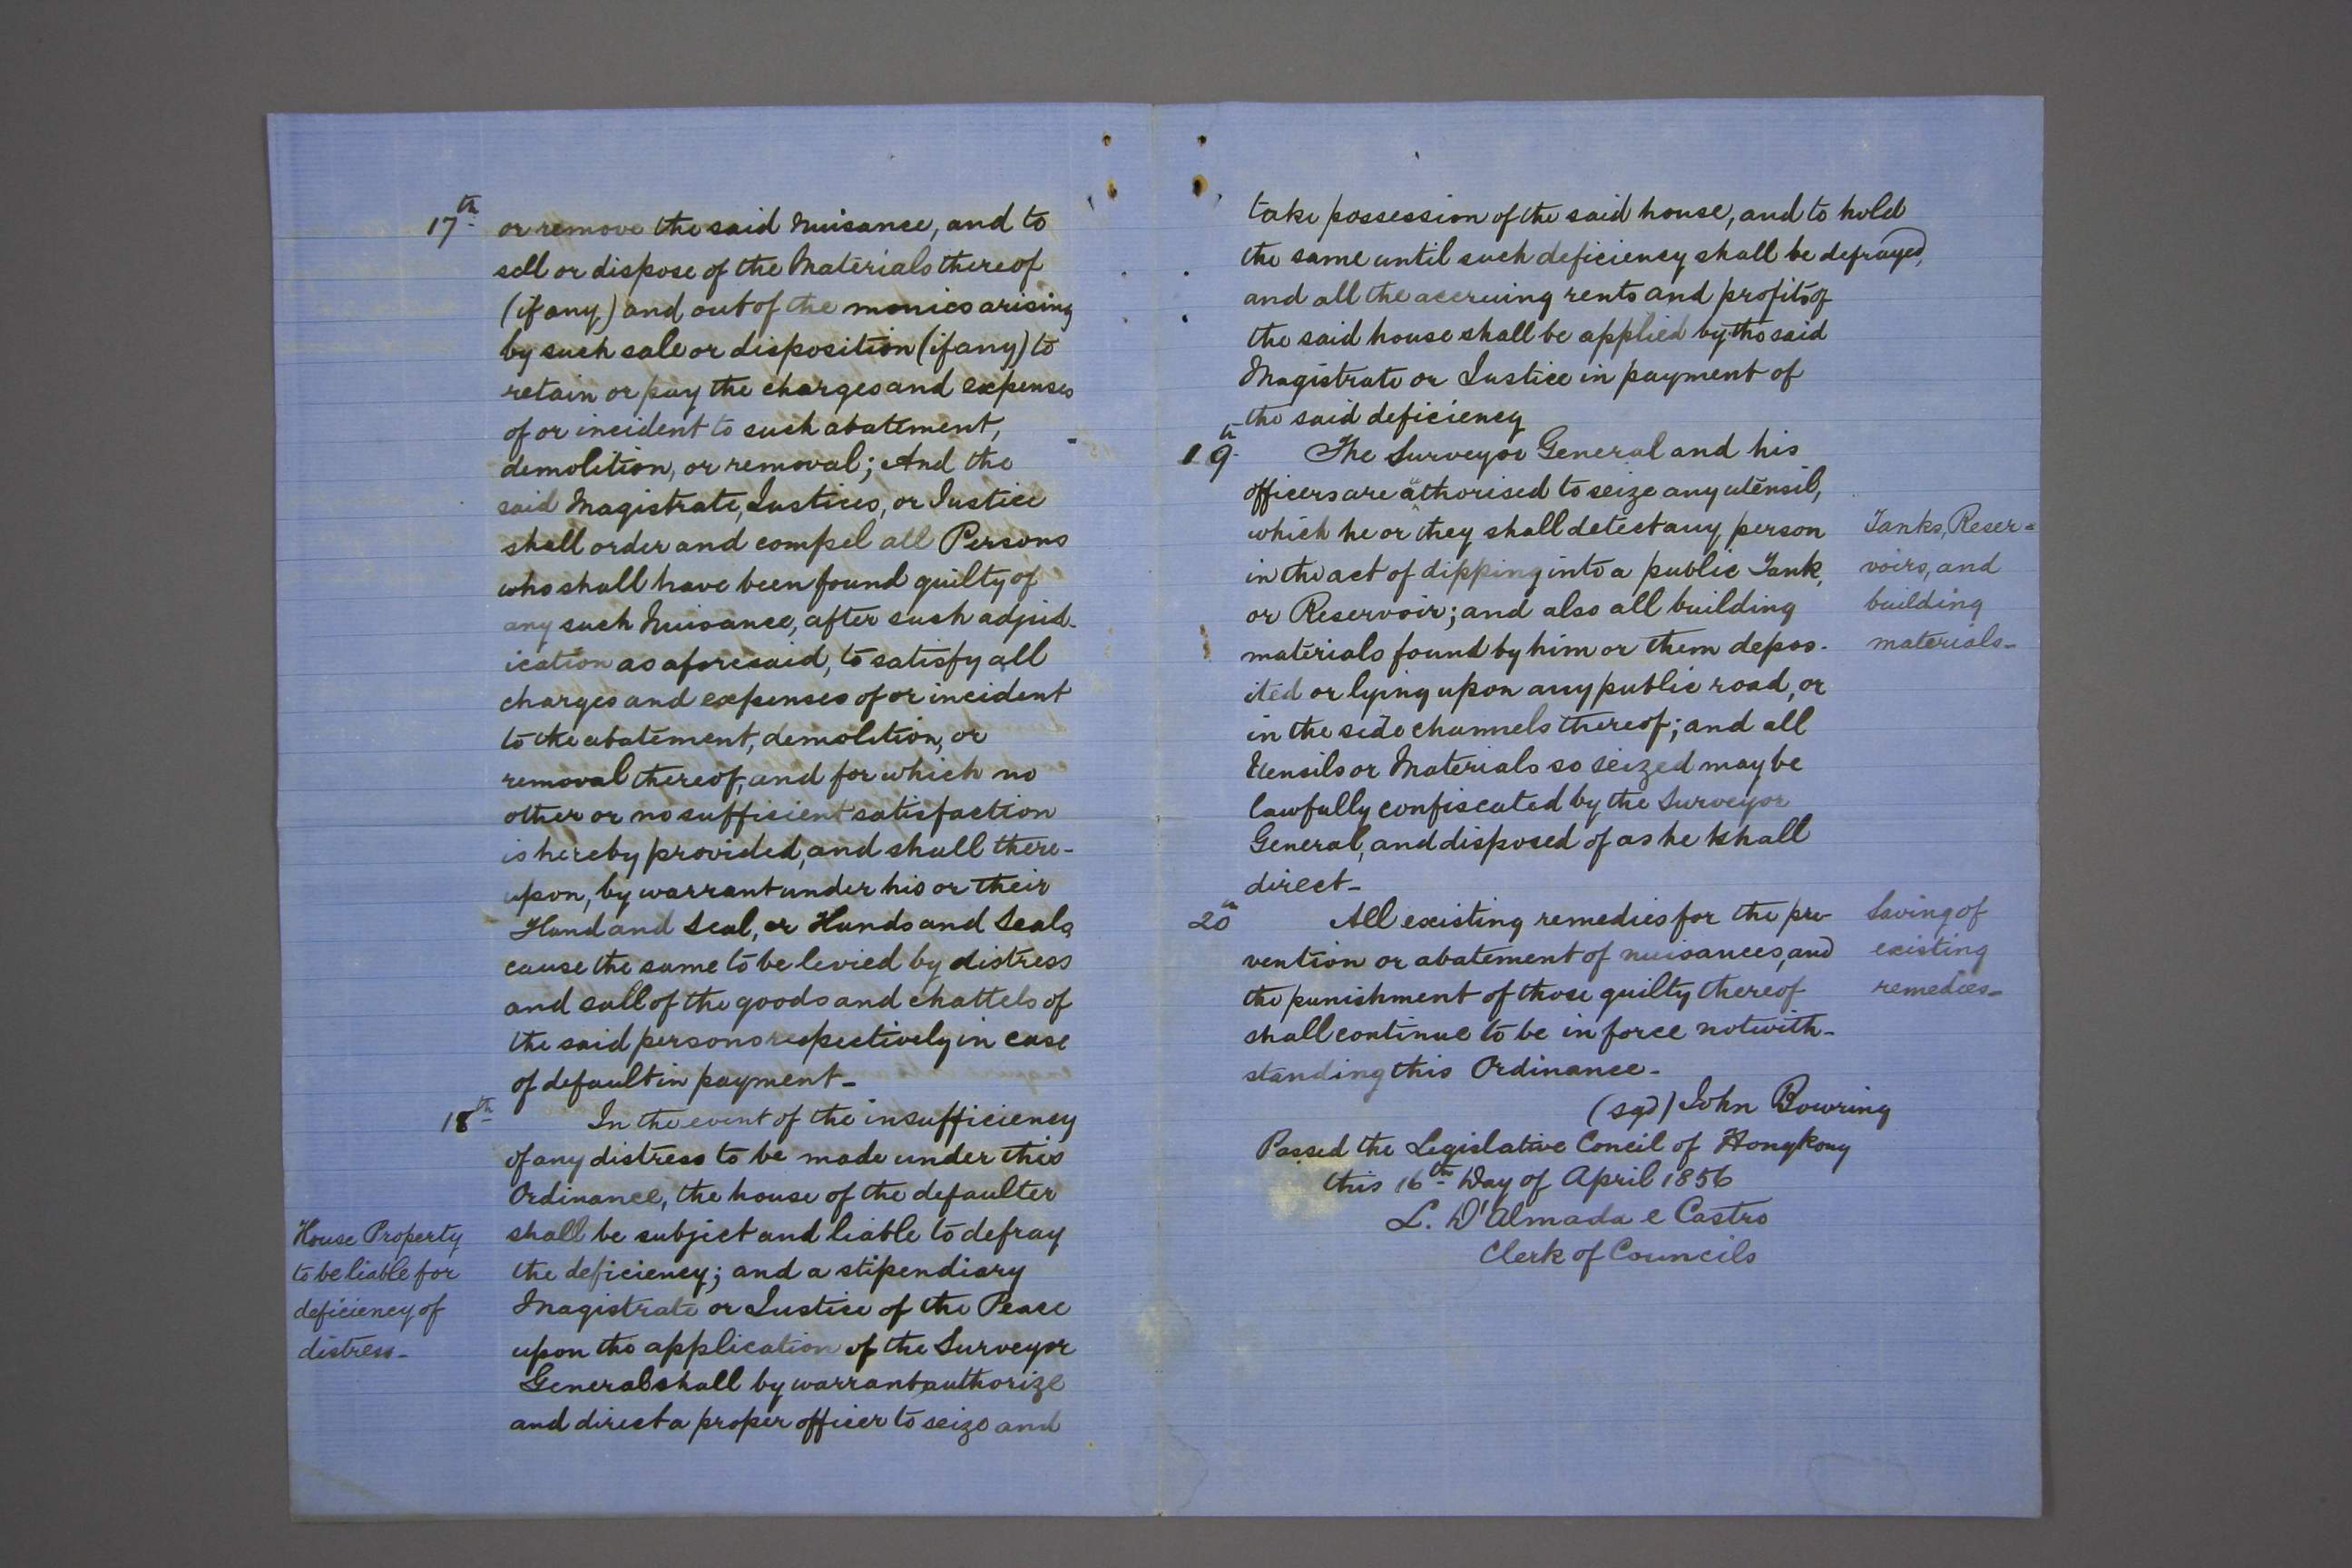 17th or remove the said Nuisance, and to
sell or dispose of the Materials thereof
(if any) and out of the monies arising
by such sale or disposition (if any) to
retain or pay the charges and expenses
of or incident to such abatement,
demolition, or removal; And the
said Magistrate, Justices, or Justice
shall order and compel all Persons
who shall have been found guilty of
any such Nuisance, after such adjud-
ication as aforesaid, to satisfy all
charges and expenses of or incident
to the abatement, demolition, or
removal thereof, and for which no
other or no sufficient satisfaction
is hereby provided, and shall there-
upon, by warrant under his or their
Hand and Seal, or Hands and Seals,
cause the same to be levied by distress
and sall of the goods and chattels of
the said persons respectively in case
of default in payment -
18th In the event of the insufficiency
of any distress to be made under this
Ordinance, the house of the defaulter
shall be subject and liable to defray
the deficiency; and a stipendiary
Magistrate or Justice of the Peace
upon the application of the Surveyor
General shall by warrant authorize
and direct a proper officer to seize and
House Property
to be liable for
deficiency of
distress -
take possession of the said house, and to hold
the same until such deficiency shall be defrayed,
and all the accruing rents and profits of
the said house shall be applied by the said
Magistrate or Justice in payment of
the said deficiency
19th The Surveyor General and his
officers are authorised to seize any utensil,
which he or they shall detect any person
in the act of dipping into a public Tank,
or Reservoir; and also all building
materials found by him or them depos-
ited or lying upon any public road, or
in the side channels thereof; and all
Utensils or Materials so seized may be
lawfully confiscated by the Surveyor
General, and disposed of as he shall
direct -
Tanks, Reser=
voirs, and
building
materials -
20th All existing remedies for the pre-
vention or abatement of nuisances, and
the punishment of those guilty thereof
shall continue to be in force notwith-
standing this Ordinance -
Saving of
existing
remedies -
(sgd) John Bowring
Passed the Legislative Concil of Hongkong
this 16th Day of April 1856
L. D'Almada e Castro
Clerk of Councils